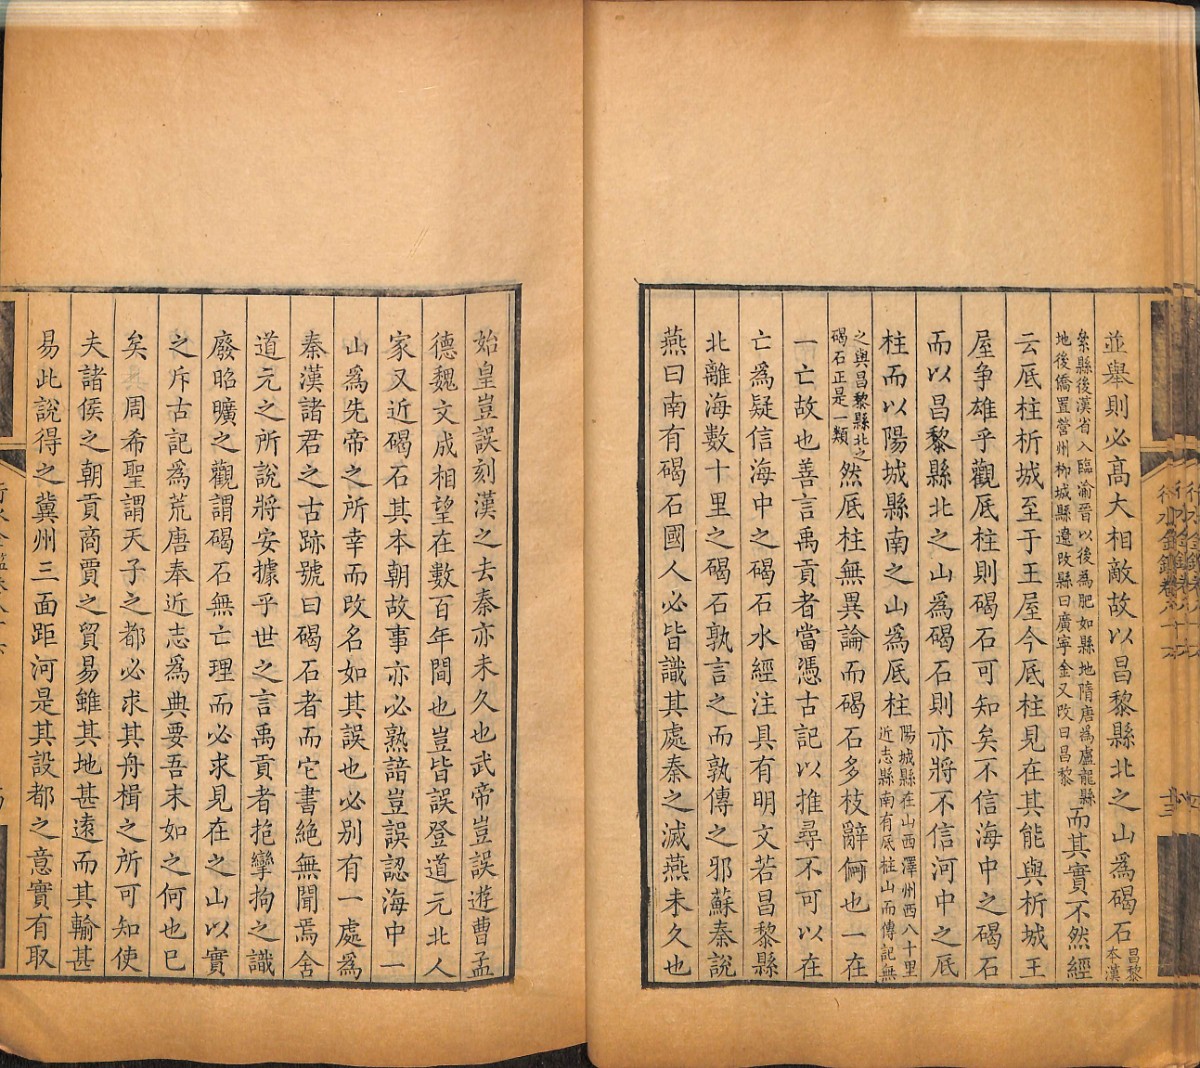 並舉則必髙大相敵故以昌黎縣北之山爲碣石昌黎本漢
絫縣後漢省入臨渝晉以後爲肥如縣地隋唐爲盧龍縣地後僑置營州柳城縣遼改縣曰廣寧金又改曰昌黎而其實不然經
云厎柱析城至于王屋今厎柱見在其能與析城王
屋争雄乎觀厎柱則碣石可知矣不信海中之碣石
而以昌黎縣北之山爲碣石則亦將不信河中之厎
柱而以陽城縣南之山爲厎柱陽城縣在山西澤州西八十里近志縣南有厎柱山而傳記無
之與昌黎縣北之碣石正是一類然厎柱無異論而碣石多枝辭何也一在
一亡故也善言禹貢者當憑古記以推尋不可以在
亡爲疑信海中之碣石水經注具有明文若昌黎縣
北離海數十里之碣石孰言之而孰傳之邪蘇秦説
燕曰南有碣石國人必皆識其處秦之滅燕未久也
始皇豈誤刻漢之去秦亦未久也武帝豈誤遊曹孟
德魏文成相望在數百年間也豈皆誤登道元北人
家又近碣石其本朝故事亦必熟諳豈誤認海中一
山爲先帝之所幸而改名如其誤也必别有一處爲
秦漢諸君之古跡號曰碣石者而它書絶無聞焉舍
道元之所説將安據乎世之言禹貢者抱攣拘之識
廢昭曠之觀謂碣石無亡理而必求見在之山以實
之斥古記爲荒唐奉近志爲典要吾末如之何也已
矣 周希聖謂天子之都必求其舟楫之所可知使
夫諸侯之朝貢商賈之貿易雖其地甚遠而其輸甚
易此説得之冀州三面距河是其設都之意實有取
行水金鑑卷